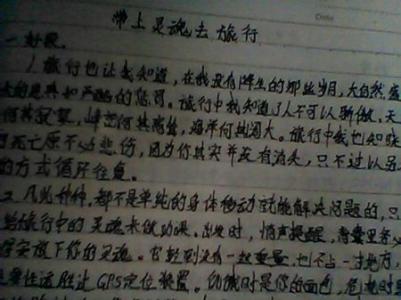 带上灵魂去旅行
一 好段.
1. 旅行也让我知道,在我没有降生的那些岁月,大自然盛
大的恩典和严酷的惩罚。旅行中我知道了人不可以骄傲,天
何其寂寥,峰峦何其高耸,海洋何其阔大。旅行中我也知晓
死亡原不必悲伤,因为你其实并没有消失,只不过以另
的方式循环往复。
2. 凡此种种,都不是单纯的身体移动就能解决问题的,只
给旅行中的灵魂来做功课。出发时,悄声提醒,背囊里务必
安放下你的灵魂。它轻到没有一丝重量,也不占一寸地方,
重要性远胜过GPS定位装置。饥饿时是你的面包,危机时